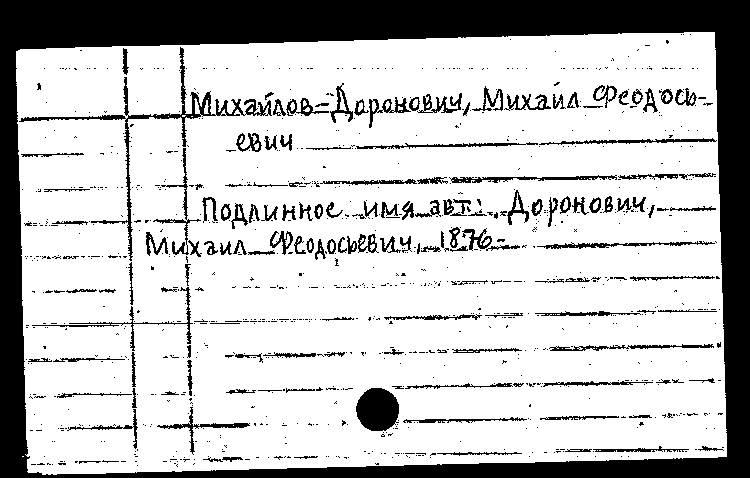 Михайлов-Доронович, Михаил Феодось-
евич
Подлинное имя авт: Доронович,
Михаил Феодосьевич, 1876-